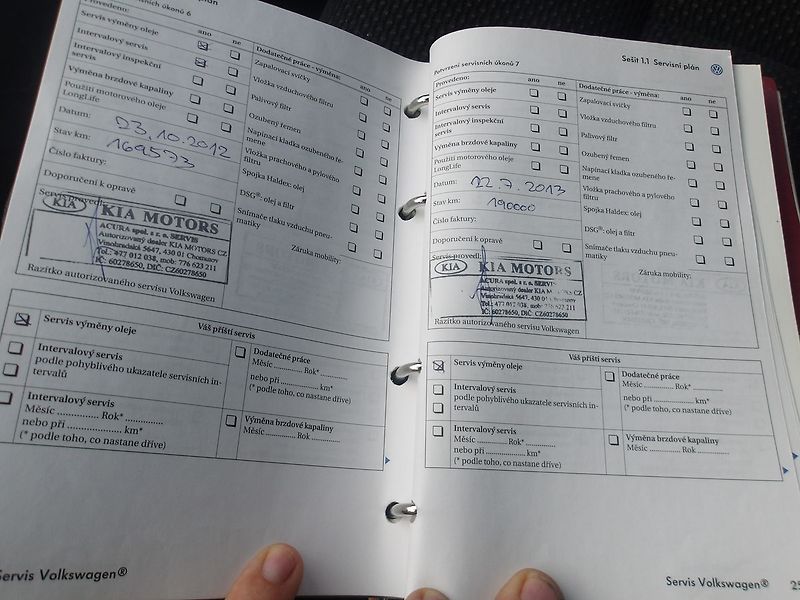 servisních úkonů 6
plán
Servis výměny oleje
Intervalový servis
Intervalový inspekční
servis
Výměna brzdové kapaliny
Použití motorového oleje
LongLife
ano
ne
Datum: 23.10.2012
Stav km: 169573
Číslo faktury:
Doporučení k opravě
Servis provedl:
KIA
KIA MOTORS
ACURA spol. s r. o. SERVIS
Autorizovaný dealer KIA MOTORS CZ
Vinohradská 5647, 430 01 Chomutov
Tel.: 477 012 038, mob: 776 623 211
IČ: 60278650, DIČ: CZ60278650
Razítko autorizovaného servisu Volkswagen
Dodatečné práce - výměna:
ano
ne
Zapalovací svíčky
Vložka vzduchového filtru
Palivový filtr
Ozubený řemen
Napínací kladka ozubeného ře-
mene
Vložka prachového a pylového
filtru
Spojka Haldex: olej
DSG®: olej a filtr
Snímače tlaku vzduchu pneu-
matiky
Záruka mobility:
Váš příští servis
Servis výměny oleje
Intervalový servis
podle pohyblivého ukazatele servisních in-
tervalů
Intervalový servis
Měsíc .............. Rok* ..............
nebo při .................. km*
(* podle toho, co nastane dříve)
Dodatečné práce
Měsíc .............. Rok* ..............
nebo při .................. km*
(* podle toho, co nastane dříve)
Výměna brzdové kapaliny
Měsíc .............. Rok ..............
Servis Volkswagen®
Potvrzení servisních úkonů 7
Sešit 1.1 Servisní plán
Provedeno:
ano
ne
Servis výměny oleje
Intervalový servis
Intervalový inspekční
servis
Výměna brzdové kapaliny
Použití motorového oleje
LongLife
Datum: 12.7.2013
Stav km: 190000
Číslo faktury:
Doporučení k opravě
Servis provedl:
KIA
KIA MOTORS
ACURA spol. s r. o. SERVIS
Autorizovaný dealer KIA MOTORS CZ
Vinohradská 5647, 430 01 Chomutov
Tel.: 477 012 038, mob: 776 623 211
IČ: 60278650, DIČ: CZ60278650
Razítko autorizovaného servisu Volkswagen
Dodatečné práce - výměna:
ano
ne
Zapalovací svíčky
Vložka vzduchového filtru
Palivový filtr
Ozubený řemen
Napínací kladka ozubeného ře-
mene
Vložka prachového a pylového
filtru
Spojka Haldex: olej
DSG®: olej a filtr
Snímače tlaku vzduchu pneu-
matiky
Záruka mobility:
Váš příští servis
Servis výměny oleje
Intervalový servis
podle pohyblivého ukazatele servisních in-
tervalů
Intervalový servis
Měsíc .............. Rok* ..............
nebo při .................. km*
(* podle toho, co nastane dříve)
Dodatečné práce
Měsíc .............. Rok* ..............
nebo při .................. km*
(* podle toho, co nastane dříve)
Výměna brzdové kapaliny
Měsíc .............. Rok ..............
Servis Volkswagen®